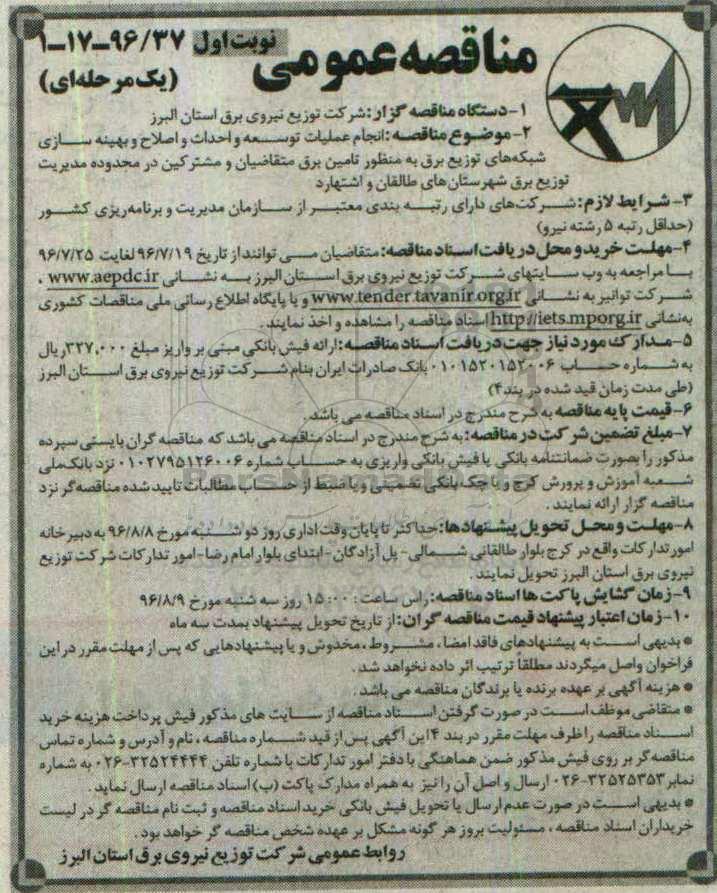 مناقصه عمومی نوبت اول ۹۶/۳۷-۱۷-۱
(یک مرحله‌ای)
۱- دستگاه مناقصه گزار: شرکت توزیع نیروی برق استان البرز
۲- موضوع مناقصه: انجام عملیات توسعه و احداث و اصلاح و بهینه سازی
شبکه‌های توزیع برق به منظور تامین برق متقاضیان و مشترکین در محدوده مدیریت
توزیع برق شهرستان‌های طالقان و اشتهارد
۳- شرایط لازم: شرکت‌های دارای رتبه بندی معتبر از سازمان مدیریت و برنامه‌ریزی کشور
(حداقل رتبه ۵ رشته نیرو)
۴- مهلت خرید و محل دریافت اسناد مناقصه: متقاضیان می توانند از تاریخ ۹۶/۷/۱۹ لغایت ۹۶/۷/۲۵
با مراجعه به وب سایتهای شرکت توزیع نیروی برق استان البرز به نشانی www.aepdc.ir ،
شرکت توانیر به نشانی www.tender.tavanir.org.ir و یا پایگاه اطلاع رسانی ملی مناقصات کشوری
به‌نشانی http://iets.mporg.ir اسناد مناقصه را مشاهده و اخذ نمایند.
۵- مدارک مورد نیاز جهت دریافت اسناد مناقصه: ارائه فیش بانکی مبنی بر واریز مبلغ ۳۲۷,۰۰۰ ریال
به شماره حساب ۰۱۰۱۵۲۰۱۵۲۰۰۶ بانک صادرات ایران بنام شرکت توزیع نیروی برق استان البرز
(طی مدت زمان قید شده در بند ۴)
۶- قیمت پایه مناقصه به شرح مندرج در اسناد مناقصه می باشد.
۷- مبلغ تضمین شرکت در مناقصه: به شرح مندرج در اسناد مناقصه می باشد که مناقصه گران بایستی سپرده
مذکور را بصورت ضمانتنامه بانکی یا فیش بانکی واریزی به حساب شماره ۰۱۰۲۷۹۵۱۲۶۰۰۶ نزد بانک ملی
شعبه آموزش و پرورش کرج و یا چک بانکی تضمینی و یا ضبط از حساب مطالبات تایید شده مناقصه‌گر نزد
مناقصه گزار ارائه نمایند.
۸- مهلت و محل تحویل پیشنهادها: حداکثر تا پایان وقت اداری روز دو شنبه مورخ ۹۶/۸/۸ به دبیرخانه
امور تدارکات واقع در کرج بلوار طالقانی شمالی- پل آزادگان- ابتدای بلوار امام رضا- امور تدارکات شرکت توزیع
نیروی برق استان البرز تحویل نمایند.
۹- زمان گشایش پاکت ها اسناد مناقصه: راس ساعت: ۱۵:۰۰ روز سه شنبه مورخ ۹۶/۸/۹
۱۰- زمان اعتبار پیشنهاد قیمت مناقصه گران: از تاریخ تحویل پیشنهاد بمدت سه ماه
* بدیهی است به پیشنهادهای فاقد امضا، مشروط، مخدوش و یا پیشنهادهایی که پس از مهلت مقرر در این
فراخوان واصل میگردند مطلقاً ترتیب اثر داده نخواهد شد.
* هزینه آگهی بر عهده برنده یا برندگان مناقصه می باشد.
* متقاضی موظف است در صورت گرفتن اسناد مناقصه از سایت های مذکور فیش پرداخت هزینه خرید
اسناد مناقصه را ظرف مهلت مقرر در بند ۴ این آگهی پس از قید شماره مناقصه، نام و آدرس و شماره تماس
مناقصه‌گر بر روی فیش مذکور ضمن هماهنگی با دفتر امور تدارکات با شماره تلفن ۳۲۵۲۴۴۴۴-۰۲۶ به شماره
نمابر ۳۲۵۲۵۳۵۳-۰۲۶ ارسال و اصل آن را نیز به همراه مدارک پاکت (ب) اسناد مناقصه ارسال نماید.
* بدیهی است در صورت عدم ارسال یا تحویل فیش بانکی خرید اسناد مناقصه و ثبت نام مناقصه گر در لیست
خریداران اسناد مناقصه، مسئولیت بروز هر گونه مشکل بر عهده شخص مناقصه گر خواهد بود.
روابط عمومی شرکت توزیع نیروی برق استان البرز